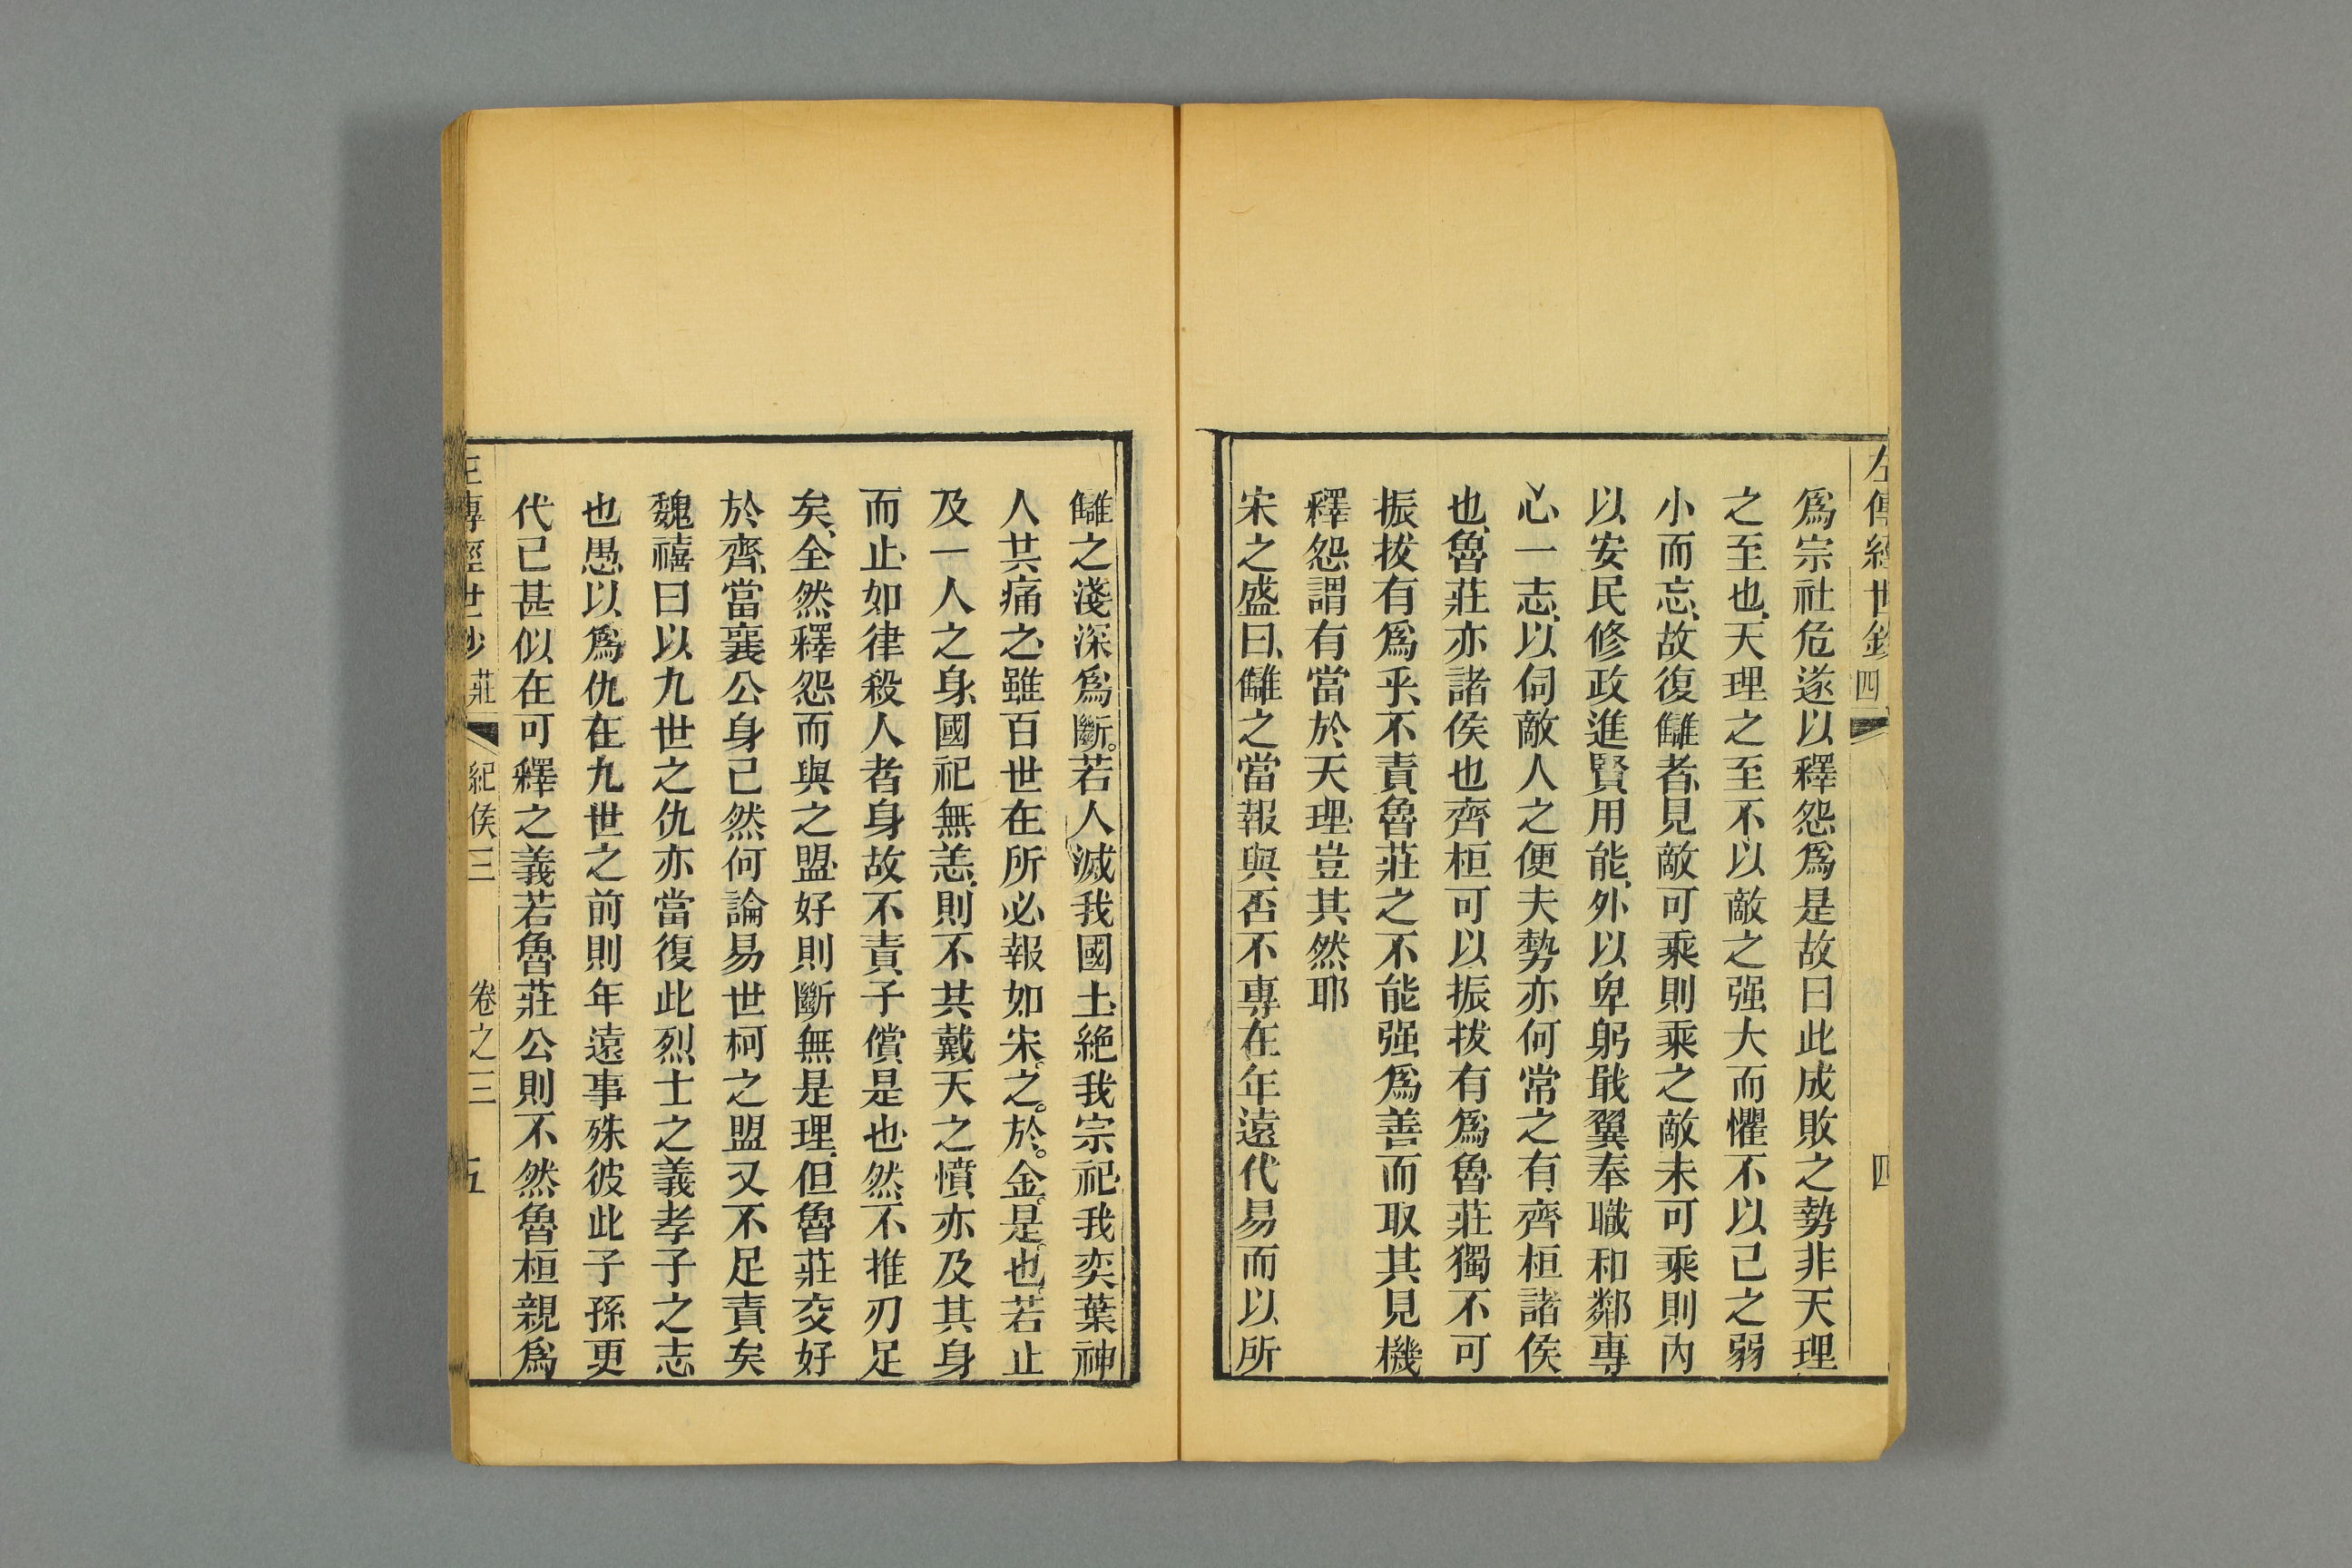 左傳經世鈔 四 四
爲宗社危遂以釋怨爲是故曰此成敗之勢非天理
之至也、天理之至不以敵之强大而懼不以己之弱
小而忘、故復讎者、見敵可乘則乘之敵未可乘則內
以安民修政進賢用能、外以卑躬戢翼奉職和鄰專
心一志、以伺敵人之便夫勢亦何常之有、齊桓諸侯
也、魯莊亦諸侯也齊桓可以振拔有爲魯莊獨不可
振拔有爲乎、不責魯莊之不能强爲善而取其見機
釋怨謂有當於天理、豈其然耶
宋之盛曰、讎之當報與否不專在年遠代易而以所
讎之淺深爲斷。若人滅我國土、絶我宗祀、我奕葉神
人共痛之、雖百世在所必報如宋。之。於。金。是。也。若止
及一人之身、國祀無恙、則不共戴天之憤、亦及其身
而止、如律殺人者身故不責子償、是也、然不推刃足
矣、全然釋怨而與之盟、好則斷無是理、但魯莊交好
於齊、當襄公身己然何論易世柯之盟又不足責矣
魏禧曰以九世之仇亦當復此烈士之義孝子之志
也愚以爲仇在九世之前則年遠事殊彼此子孫更
代已甚似在可釋之義若魯莊公則不然魯桓親爲
左傳經世鈔 莊 紀侯三 卷之三 五